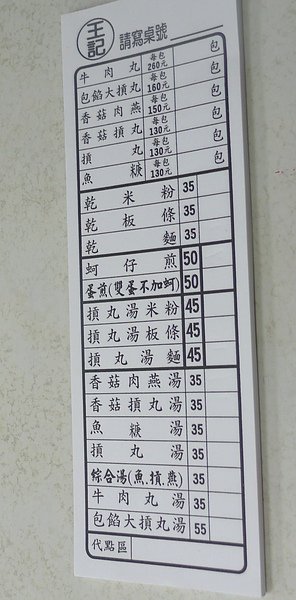 王記 請寫桌號
牛肉丸 每包260元 包
包餡大摃丸 每包160元 包
香菇肉燕 每包150元 包
香菇摃丸 每包130元 包
摃丸 每包130元 包
魚糠 每包130元 包
乾米粉 35
乾板條 35
乾麵 35
蚵仔煎 50
蛋煎(雙蛋不加蚵) 50
摃丸湯米粉 45
摃丸湯板條 45
摃丸湯麵 45
香菇肉燕湯 35
香菇摃丸湯 35
魚糠湯 35
摃丸湯 35
綜合湯(魚.摃.燕) 35
牛肉丸湯 35
包餡大摃丸湯 55
代點區